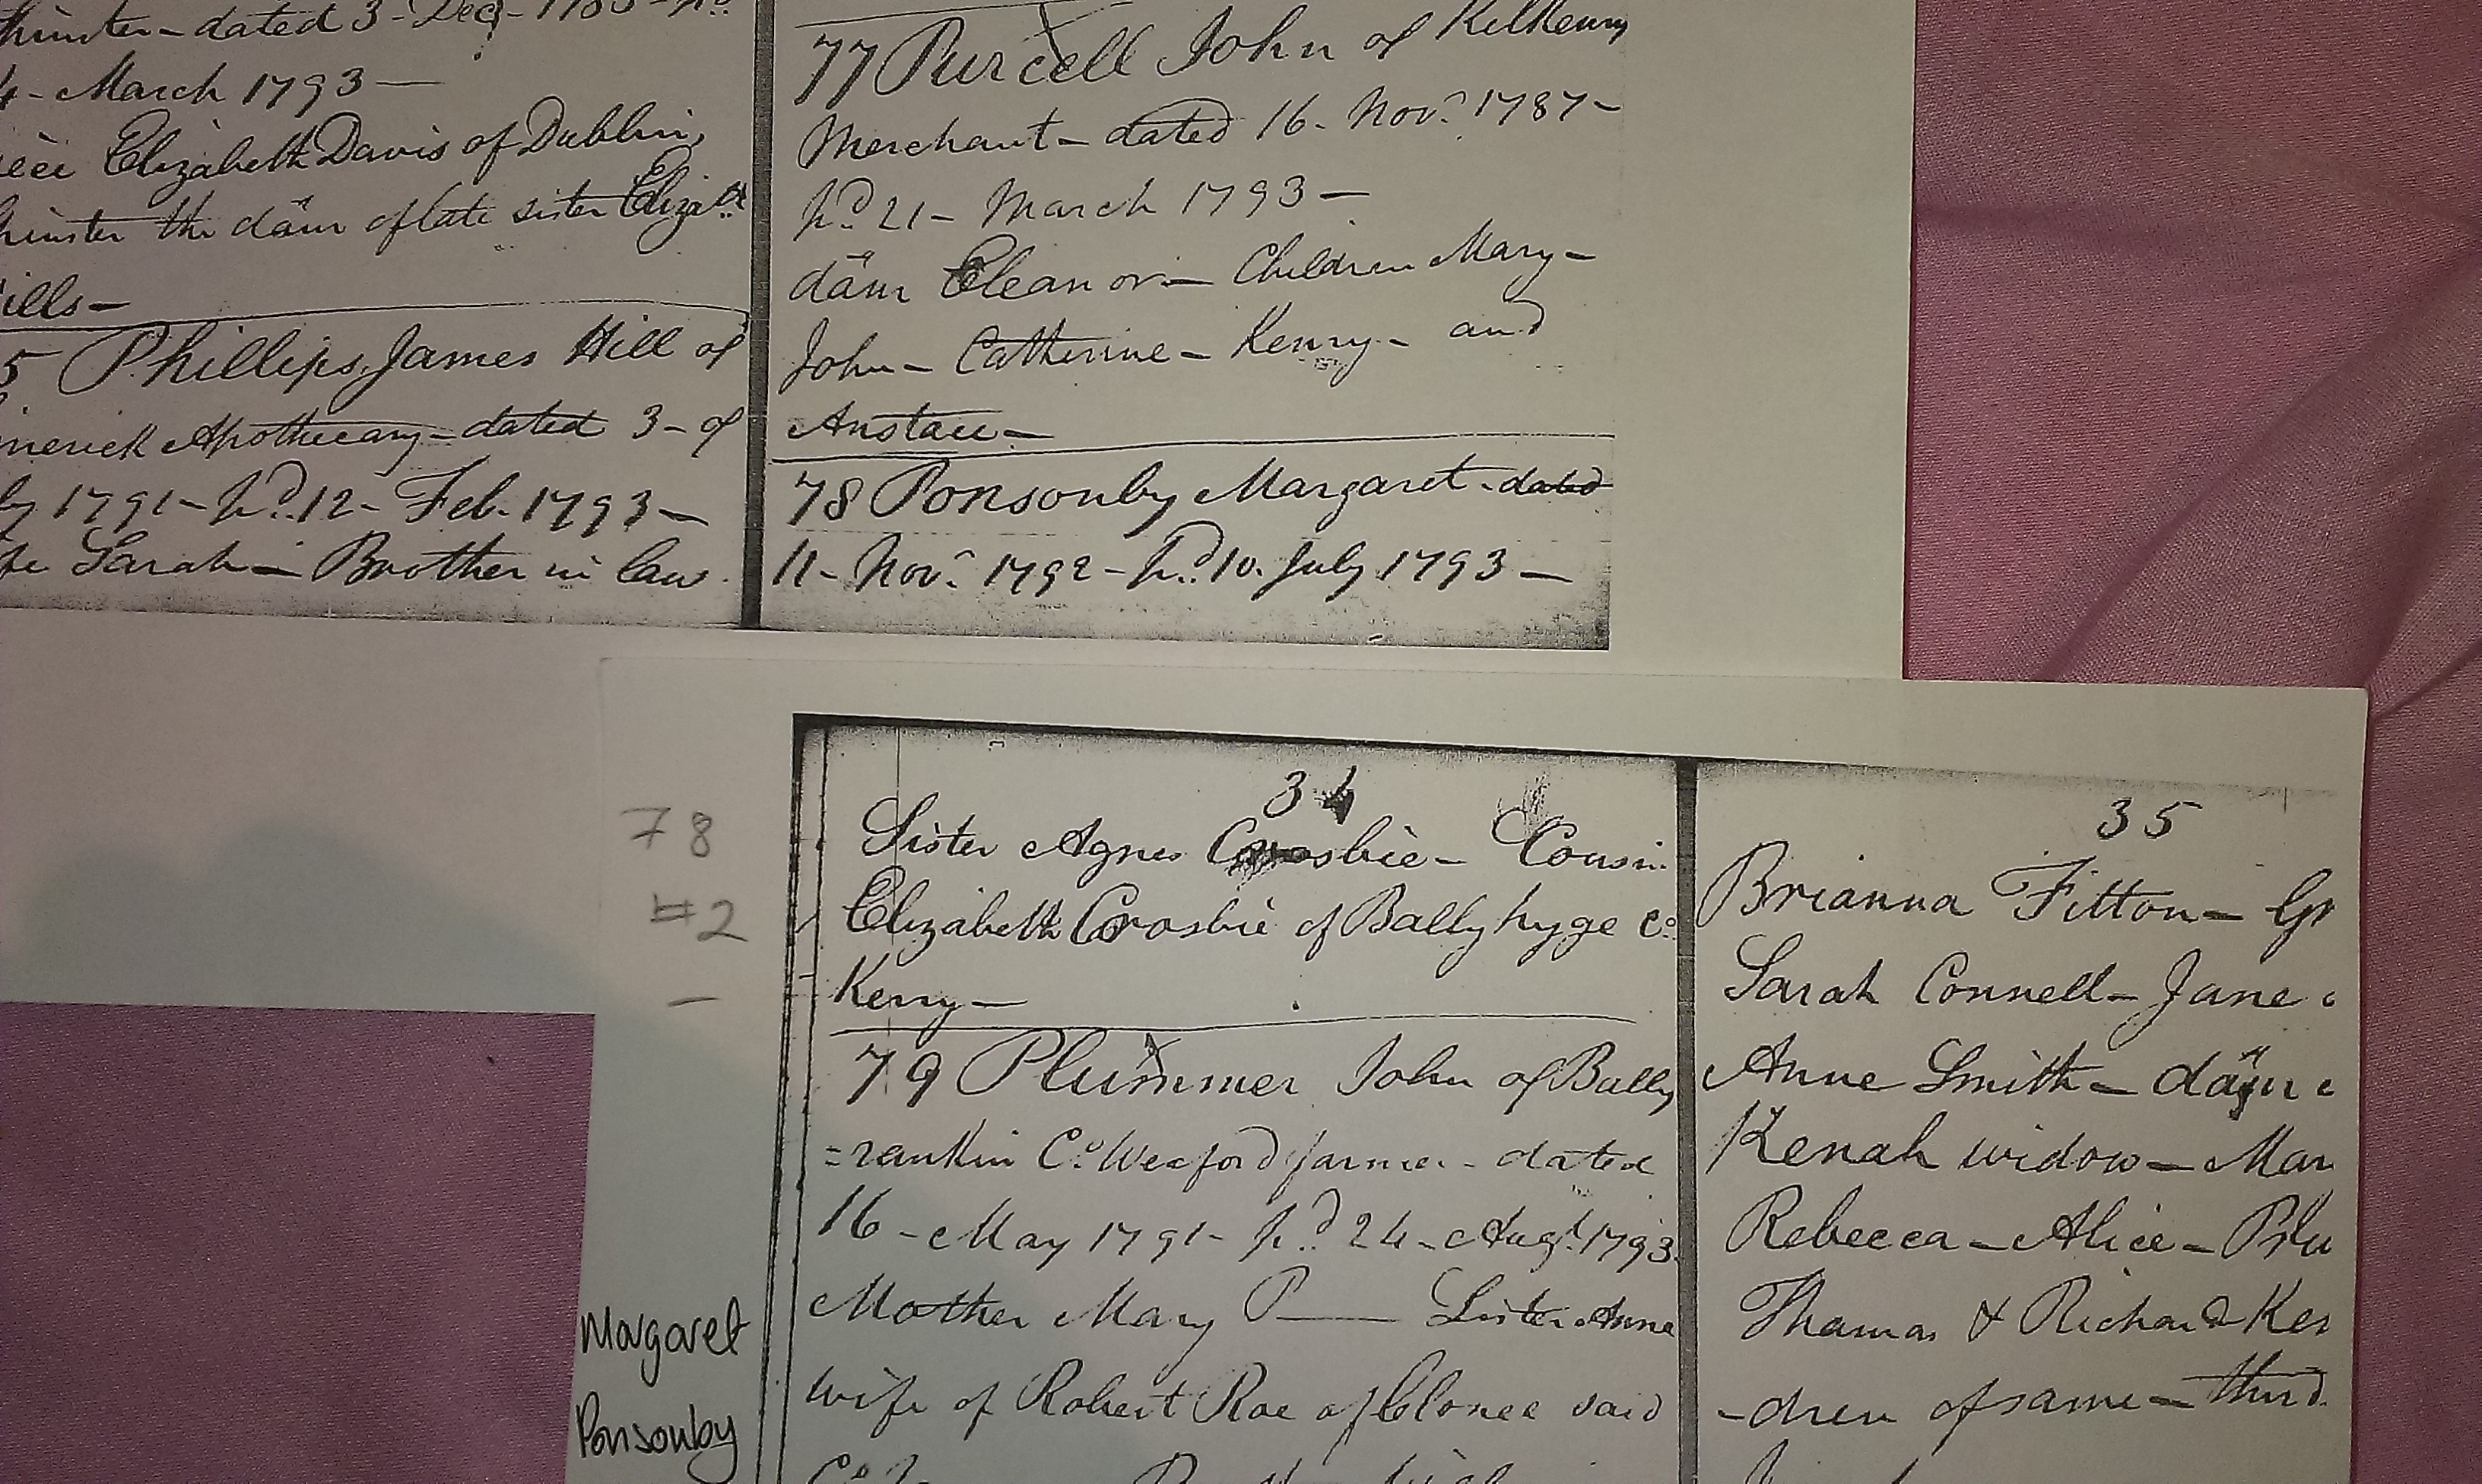 dated 3 - Dec
4 - March 1793 —
Elizabeth Davis of Dublin
the däur of late sister Eliza
ills —
5 Phillips James Hill of
merick Apothecary - dated 3 - of
ly 1791 - pd. 12 - Feb. 1793 —
fe Sarah — Brother in law
77 Purcell John of Kilkenny
Merchant - dated 16 - Nov.r 1787 -
pd. 21 - March 1793 —
däur Eleanor — Children Mary -
John - Catherine - Kenny - and
Anstace -
78 Ponsonby Margaret - dated
11 - Nov.r 1792 - pd. 10. July 1793 —
78
#2
—
Margaret
Ponsonby
34
Sister Agnes Crosbie - Cousin
Elizabeth Crosbie of Ballyhyge Co.
Kerry —
79 Plummer John of Bally
=rankin Co. Wexford farmer - dated
16 - May 1791 - pd. 24 - Augt. 1793.
Mother Mary P—— Sister Anne
wife of Robert Roe of Clonee said
35
Brianna Fitton - Gr
Sarah Connell - Jane
Anne Smith - däur
Kenah widow - Mar
Rebecca - Alice - Plu
Thomas & Richard Ken
-dren of same - third